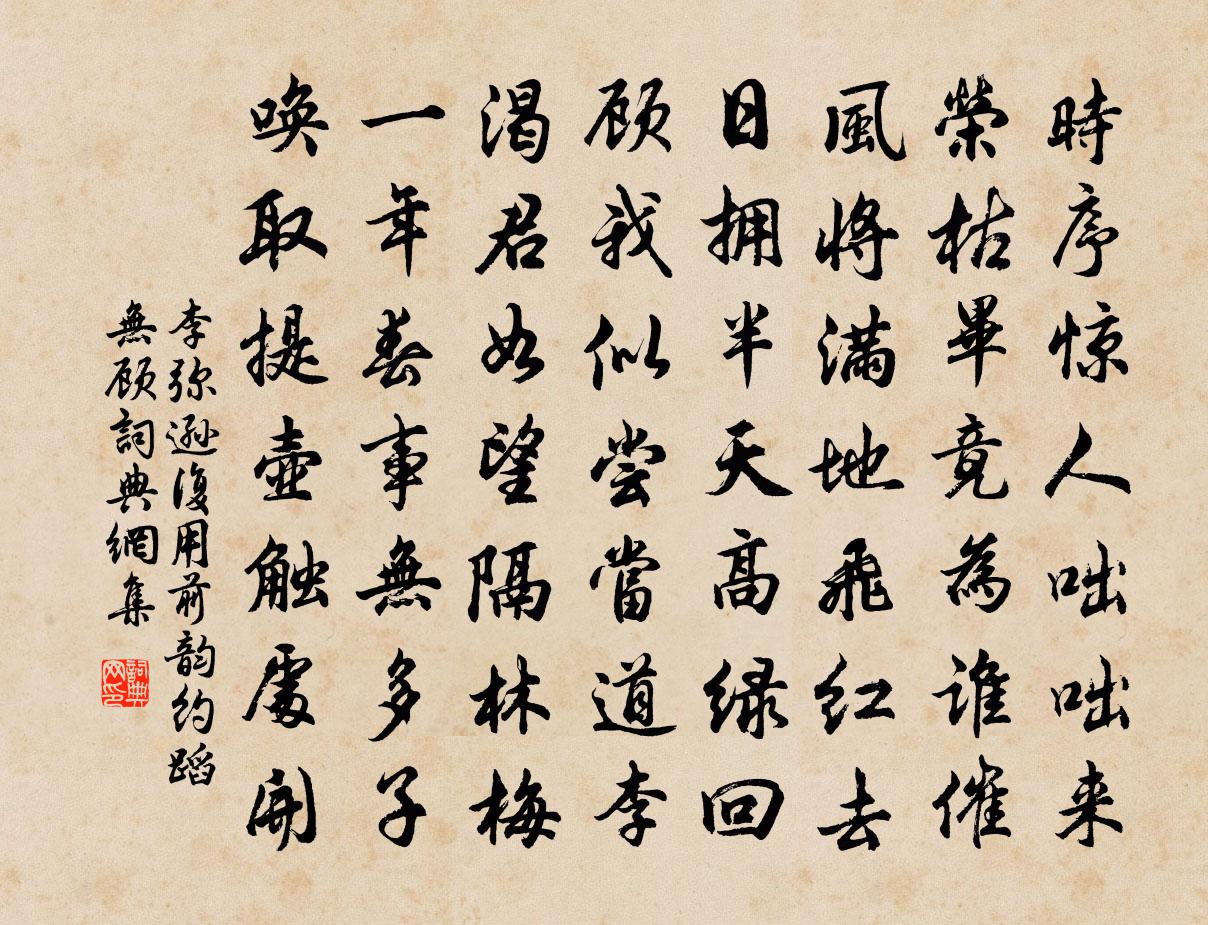 時序惊人咄咄来
榮枯畢竟為谁催
風將滿地飛红去
日拥半天高绿回
顾我似尝當道李
渴君如望隔林梅
一年春事無多子
唤取提壺触處開
李弥逊復用前韵约蹈
無顾詞典網集
詞典网印